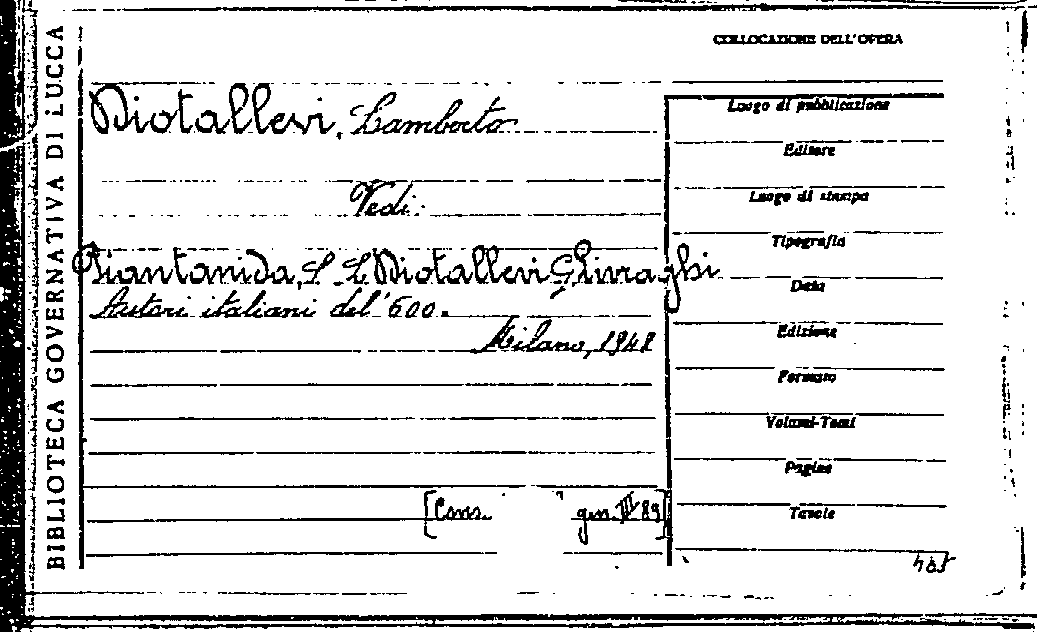 BIBLIOTECA GOVERNATIVA DI LUCCA
COLLOCAZIONE DELL'OPERA
Diotallevi, Lamberto
Vedi:
Piantanida, S. L. Diotallevi G. Livraghi
Autori italiani del '600.
Milano, 1948
[Cons. gen. III 89]
Luogo di pubblicazione
Editore
Luogo di stampa
Tipografia
Data
Edizione
Formato
Volumi-Tomi
Pagine
Tavole